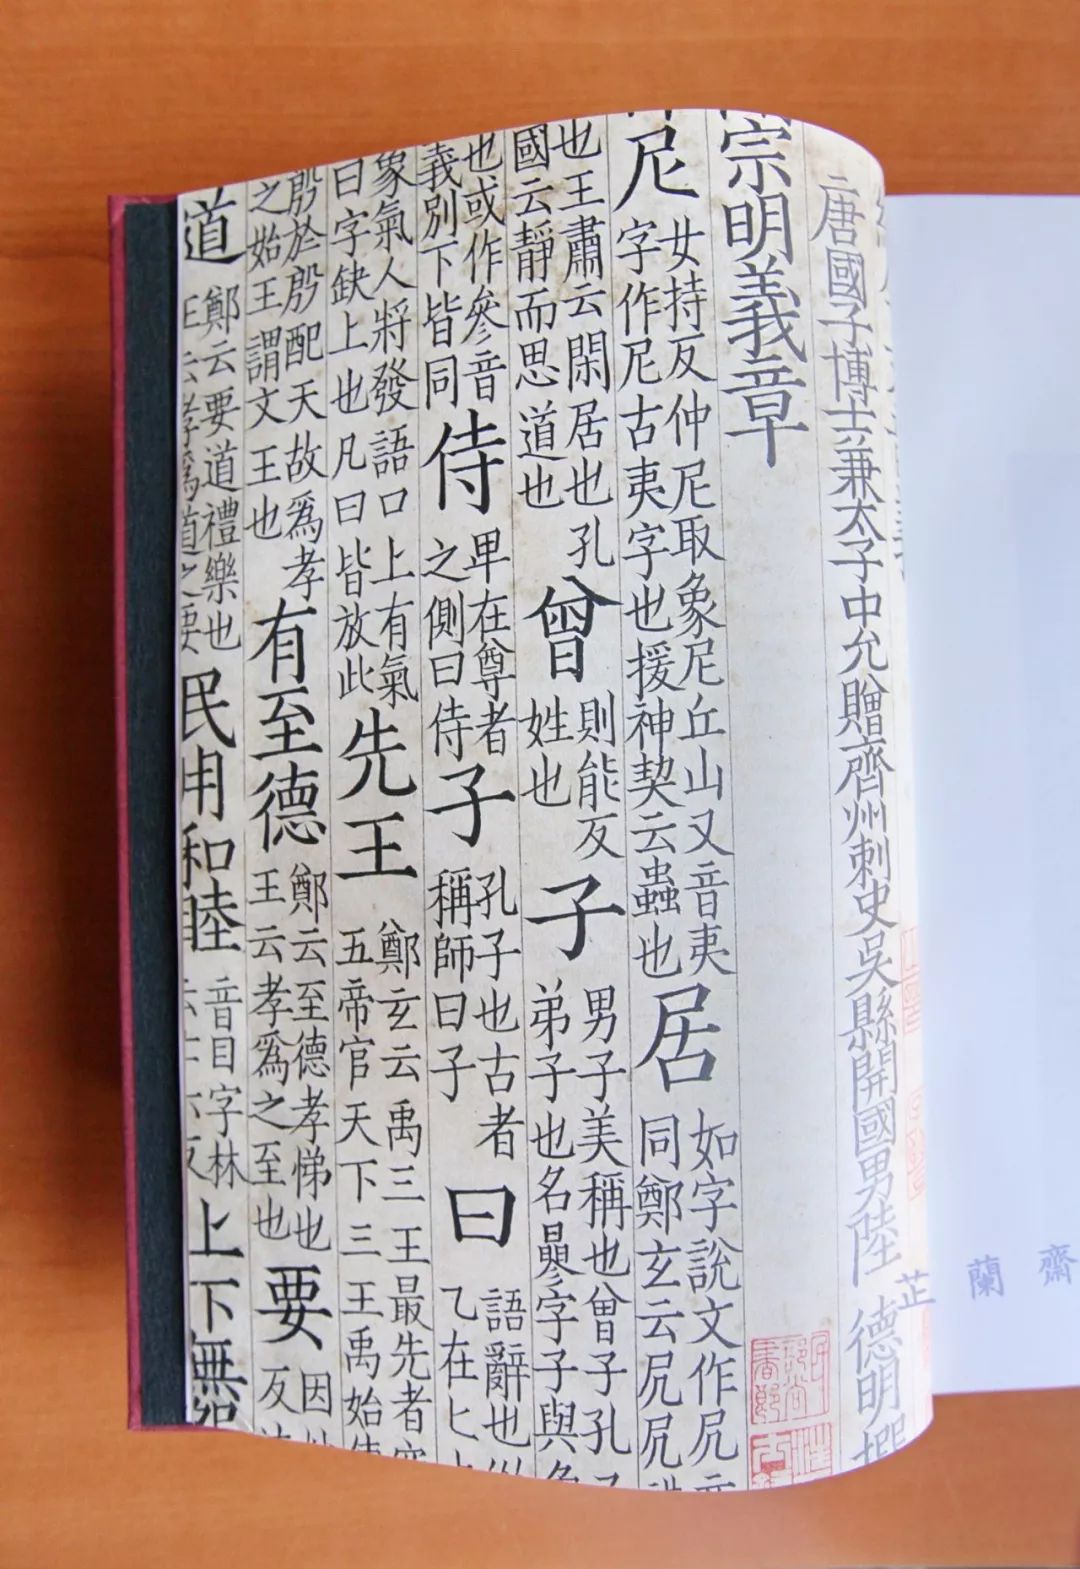 唐國子博士兼太子中允贈齊州刺史吳縣開國男陸 德明撰
宗明義章
尼 女持反仲尼取象尼丘山又音夷 字作尼古夷字也援神契云蟲也 居 如字說文作凥 同鄭玄云凥凥
也王肅云閑居也孔 國云靜而思道也 曾 則能反 姓也 子 男子美稱也曾子孔 弟子也名曑字子與
也或作參音 義別下皆同 侍 卑在尊者 之側曰侍 子 孔子也古者 稱師曰子 曰 語辭也 乙在匕
象氣人將發語口上有氣 曰字缺上也凡曰皆放此 先王 鄭玄云禹三王最先者 五帝官天下三王禹始
殷於殷配天故爲孝 之始王謂文王也 有至德 鄭云至德孝悌也 王云孝爲之至也 要 因 反
道 鄭云要道禮樂也 王云孝爲道之要 民用和睦 音目字林 六反 上下無
芷蘭齋